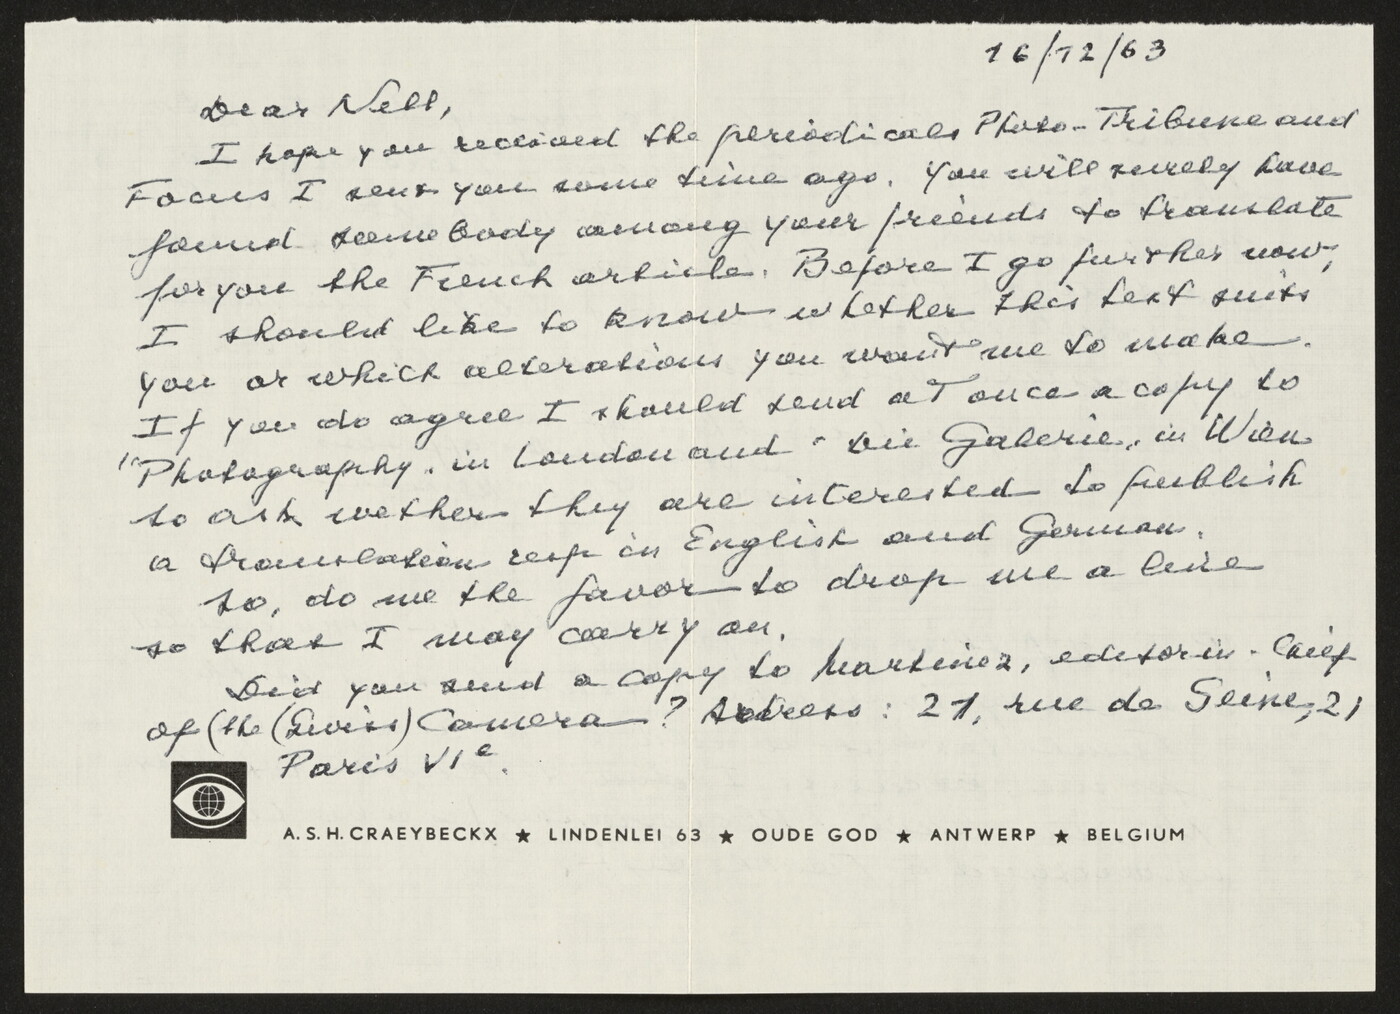 16/12/63
Dear Nell,
I hope you received the periodicals Photo-Tribune and
Focus I sent you some time ago. You will surely have
found somebody among your friends to translate
for you the French article. Before I go further now,
I should like to know whether this text suits
you or which alterations you want me to make.
If you do agree I should send at once a copy to
"Photography" in London and "Die Galerie" in Wien
to ask wether they are interested to publish
a translation resp in English and German.
So, do me the favor to drop me a line
so that I may carry on.
Did you send a copy to Martinez, editor in-Chief
of (the (Swiss) Camera? Address: 21, rue de Seine, 21
Paris VIe.
A.S.H. CRAEYBECKX ★ LINDENLEI 63 ★ OUDE GOD ★ ANTWERP ★ BELGIUM